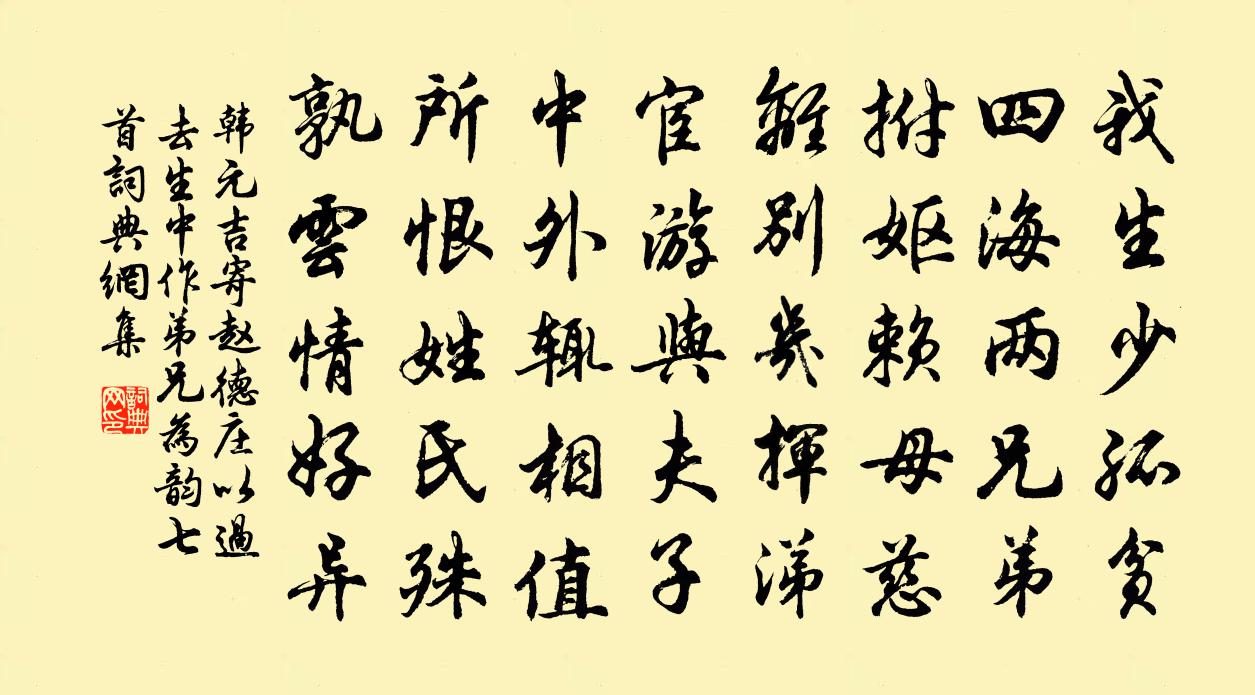 我生少孤贫
四海两兄弟
拊妪赖母慈
離别幾揮涕
宦游與夫子
中外辄相值
所恨姓氏殊
孰雲情好异
韩元吉寄赵德庄以過
去生中作弟兄為韵七
首詞典網集
詞典
网印